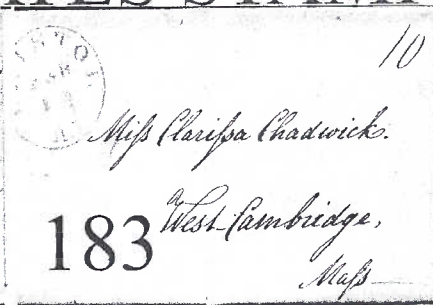 10
Miſs Clariſsa Chadwick.
West Cambridge,
183
Maſs